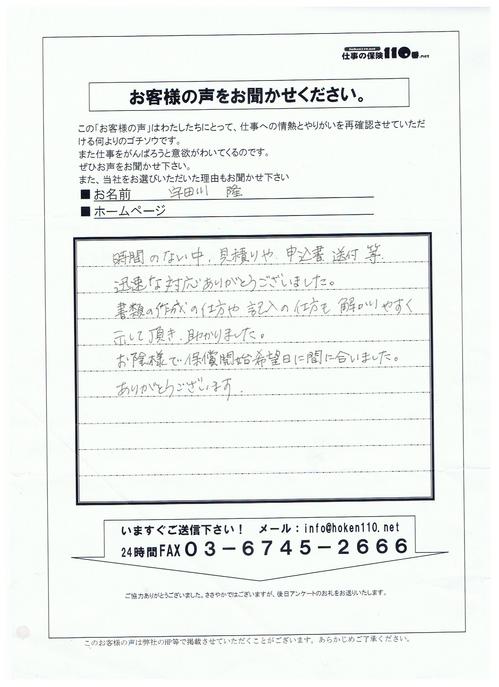 hoken110.net
仕事の保険110番.net
お客様の声をお聞かせください。
この「お客様の声」はわたしたちにとって、仕事への情熱とやりがいを再確認させていただ
ける何よりのゴチソウです。
また仕事をがんばろうと意欲がわいてくるのです。
ぜひお声をお聞かせ下さい。
また、当社をお選びいただいた理由もお聞かせ下さい
■お名前 宇田川 隆
■ホームページ
時間のない中、見積りや申込書送付等
迅速な対応ありがとうございました。
書類の作成の仕方や記入の仕方も解かりやすく
示して頂き、助かりました。
お陰様で保償開始希望日に間に合いました。
ありがとうございます.
いますぐご送信下さい! メール:info@hoken110.net
24時間FAX03-6745-2666
ご協力ありがとうございました。ささやかではございますが、後日アンケートのお礼をお送りいたします。
このお客様の声は弊社の冊等で掲載させていただくことがございます。あらかじめご了承ください。